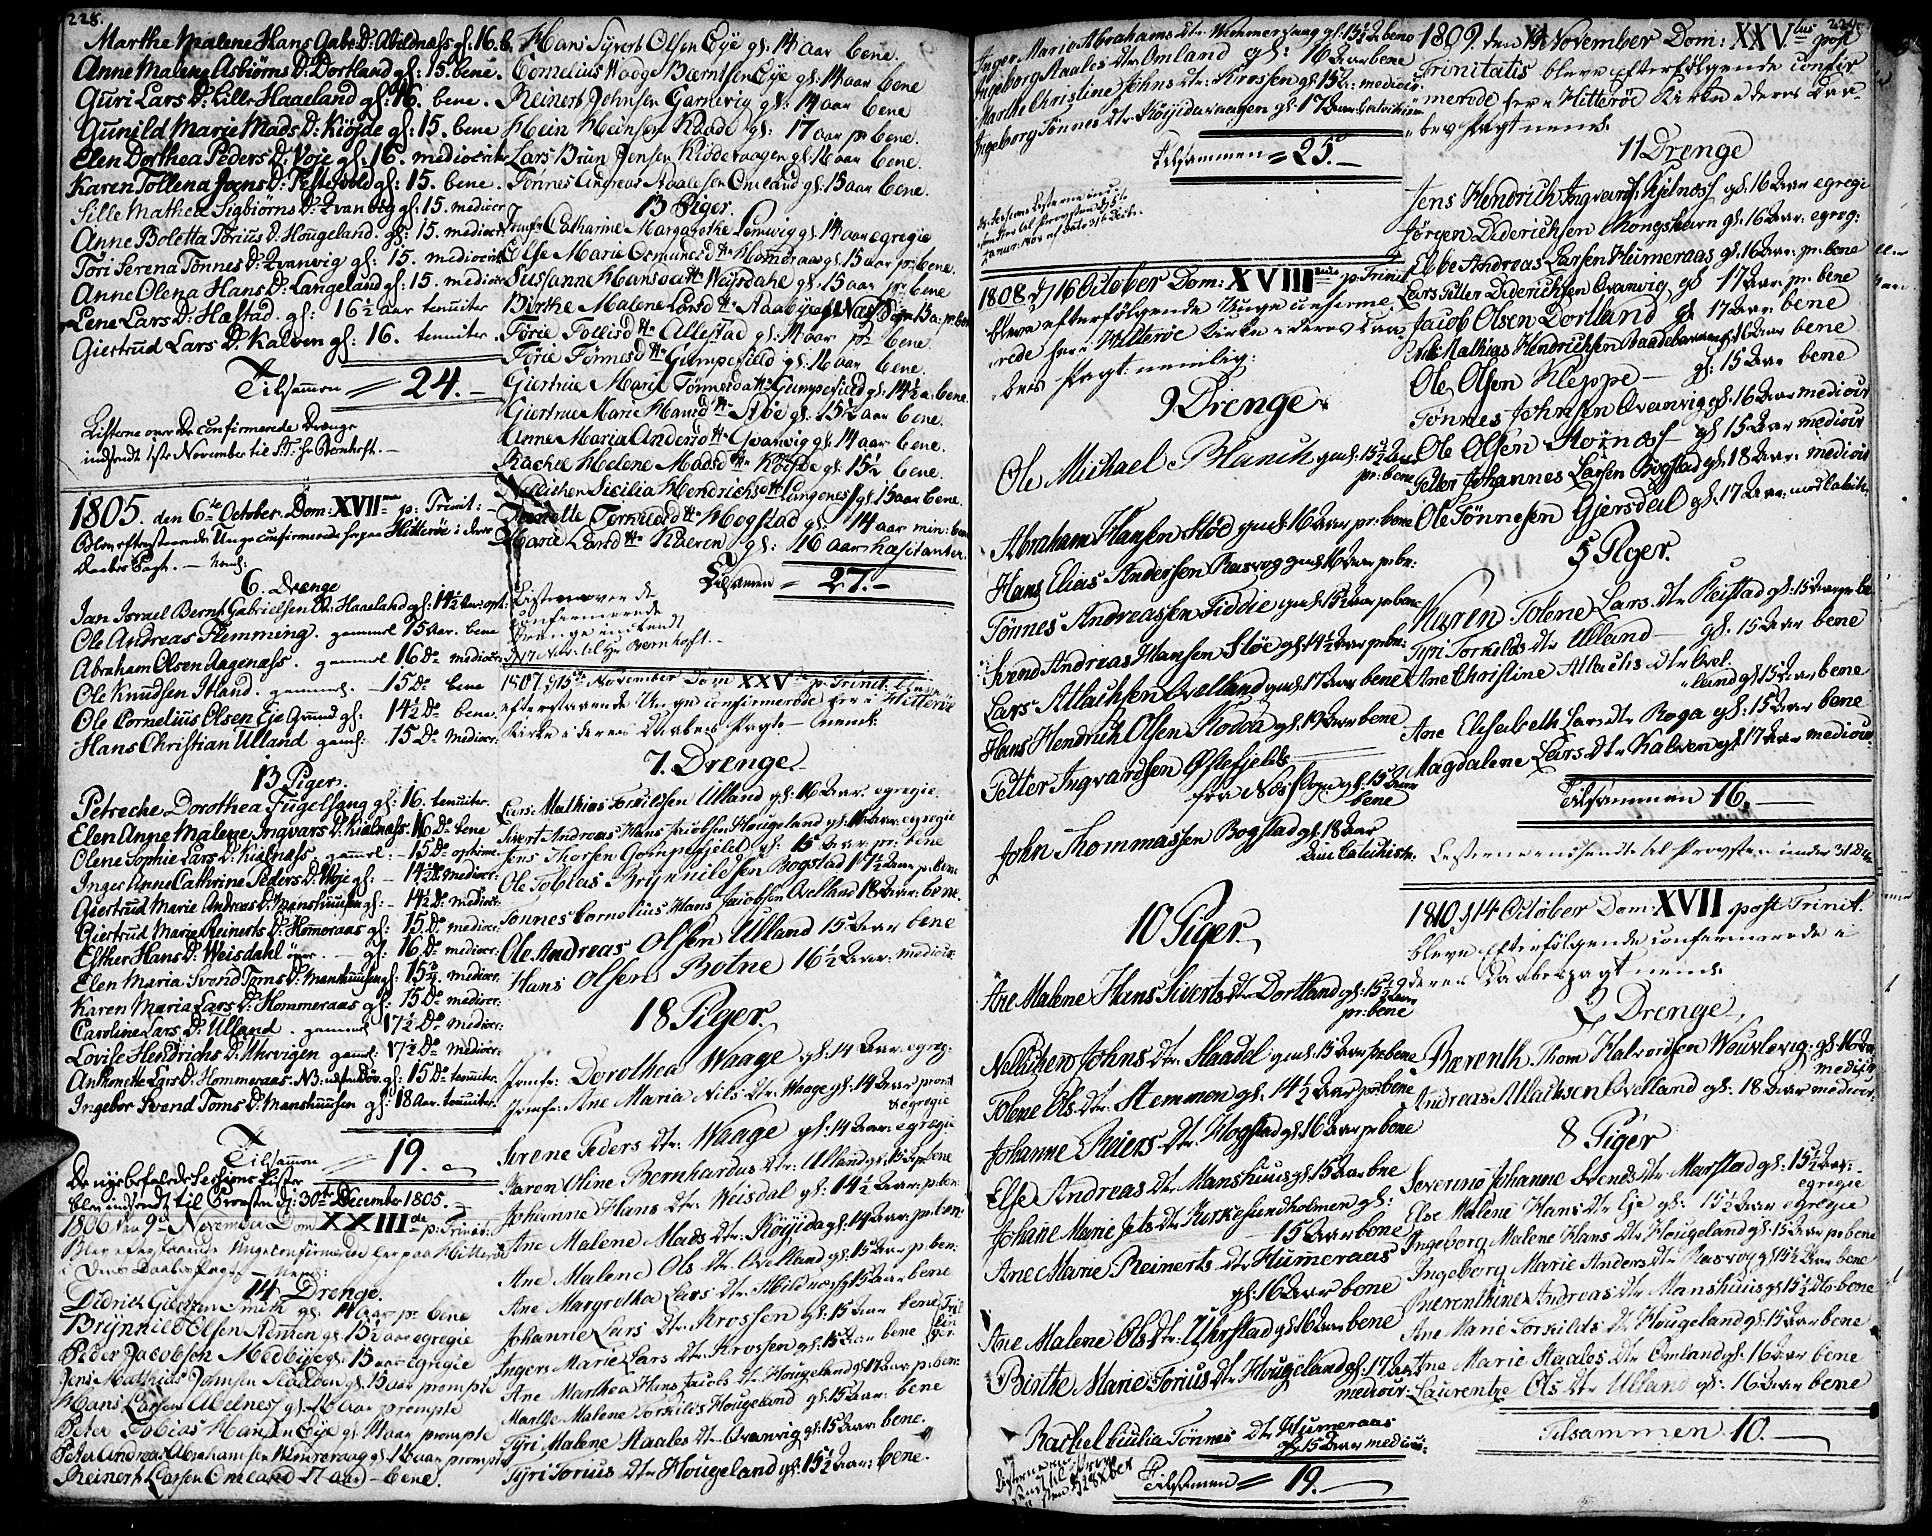 228.
Marthe Malene Hans Gabr. D: Abildnæss gl: 16. b.
Anne Malena Asbiørns D: Dortland gl: 15. bene.
Guri Lars D: Lille Haaeland gl: 16. bene.
Gunild Marie Mads D: Kiøjde gl: 15. bene
Elen Dorthea Peders D: Voje gl: 16. mediocriter
Karen Tollena Joens D: gl: 15. bene.
Sille Mathea Sigbiørns D: Qvanvig gl: 15. medioer
Anne Boletta Torius D: Hougeland. gl: 15. medioer
Tori Serena Tonnes D: Qvanvig gl: 15. mediocrit
Anne Olena Hans D: Langeland gl: 15. medioer
Lene Lars D: Hæstad. gl: 16½ aar tenuiter
Giertrud Lars D: Kalven gl: 16. tenuiter
Tilsamen 24.
Listerne over De confirmerede Drenge
indsendt 1ste November til
1805. den 6te October. Dom: XVII p: Trinit:
Blev efterstaaende Unge confirmerede her paa Hitterøe i deres
Daabs Pagt. — Neml:
6. Drenge
Jan Israel Bernt Gabrielsen Haaeland gl: 14½ Aar opt:
Ole Andreas Flemming. gammel 15 Aar. bene
Abraham Olsen Aagenæss. gammel 16 Do medioer
Ole Knudsen Itland. gammel. 15 Do bene
Ole Cornelius Olsen Eje Grund gl: 14½ Do bene.
Hans Christian Ulland gaml: 15 Do Medioer:
13 Piger.
Petreche Dorothea Fugelsang gl: 16. tenuiter.
Elen Anne Malene Ingvars D: Kialnæss. 16 Do bene
Olene Sophie Lars D: Kialnæss. gammel: 15 Do optime.
Inger Anne Cathrine Peders D: Woje gl: 14½ Do medioer:
Giertrud Marie Andreas D: Manshuusen gl: 14½ Do medioer:
Giertrud Marie Reinerts D: Homeraas gl: 15 Do medioer:
Esther Hans D: Weisdahl gl: 16 Do medioer:
Elen Maria Svend Toms D: Manshuusen gl: 15½ medioer:
Karen Maria Lars D: Hommeraas gl: 15 Do medioer:
Caroline Lars D: Ulland. gammel 17½ Do medioer:
Lovise Hendrichs D: Uhrvigen gaml: 17½ Do Medioer:
Anthonette Lars D: Hommeraas. NB: gl: 15 Do tenuiter.
Ingebor Svend Toms D: Manshuusen gl: 18 Aar. tenuiter
Tilsamen 19.
De nye befalede Sessions Lister
blev indsendt til Provsten d: 30te December 1805.
1806 den 9de November Dom XXIII p: Trinit:
Blev efterstaaende Unge confirmerede her paa Hitterøe
i deres Daabs Pagt — Neml:
14 Drenge.
Didrich Smith gl: 14 aar pr bene
Brynnild Olsen Stemmen gl: 15½ aar egregie
Peder Jacobsen Medbye gl: 15 aar egregie
Jens Mathias Jonsen Staadon gl: 15 aar prompte
Hans Larsen Abelnes gl: 16 aar prompte
Peter Tobias Hansen Eye gl: 14 aar prompte
Peter Andreas Abrahamsen Wimeraag gl: 16 aar prompte
Reinert Larsen Omland 17 aar — bene.
Hans Syvert Olsen Eye gl: 14 aar bene.
Cornelius Waage Berntsen Eye gl: 14 aar bene
Reinert Johnsen Garnevig gl: 14 aar bene
Hein Heinsen Raade gl: 17 aar pr bene.
Lars Brun Jensen Kiøderaagen gl: 16 aar bene.
Tønnes Andreas Aalesen Omland gl: 15 aar bene.
13 Piger.
Jomfr: Catharine Margarethe Lemvig gl: 14 aar egregie
Else Marie Osmunds Dtr Homdraas gl: 15 aar pr: bene.
Susanne Hans datter Weisdahl gl: 15 aar pr: bene
Birthe Malene Lars Dtr Raabye gl: 15 a: pr: bene
Torie Tollis Dtr Allestad gl: 14 aar pr bene.
Torie Tønnes Dtr Gumpefield gl: 16 aar bene.
Giertrue Marie Tønnesdatter Gumpefield gl: 14½ a: bene.
Giertrue Marie Hans Dtr Støe gl: 15½ aar bene.
Anne Maria Anders Dtr Qvanvig gl: 14 aar bene.
Rachel Helene Mads Dtr Kiøjde gl: 15½ bene.
Nellichen Sicilia Hendrichs Dtr Langenes gl: 15 aar bene.
Torkilds Dtr Hogstad gl: 14 aar min: bene
Marie Lars Dtr Kaeren gl: 16 aar hæsitanter.
Tilsamen 27.
Listerne over de
confirmerede
Drenge indsendt
d: 17 Nov: til Hr Bernhoft.
1807. d 15de November Dom XXV p. Trinit. bleve
efterstaaende Unge confirmerede her i Hitterøe
Kirke i deres Daabes Pagt — neml:
7. Drenge.
Lars Mathias Torkildsen Ulland gl: 16 Aar: egregie
Sivert Andreas Hans Jacobsen Hougeland gl: 16 Aar: egregie
Jens Thorsen Gompefjeld gl: 15 Aar pr: bene
Ole Tobias Brynnildsen Bogstad 17½ Aar pr: bene
Tonnes Cornelius Hans Jacobsen Qvelland 18 Aar: bene.
Ole Andreas Olsen Ulland 15 Aar bene
Hans Olsen Botne 16½ Aar: medioir:
18 Piger.
Jomfr: Dorothea Waage gl: 14 Aar: egreg:
Jomfr: Ane Maria Nils Dtr: Waage gl: 14 Aar prompt
& egregie
Serene Peders Dtr: Waage gl: 14 Aar: egregie
Karen Oline Bernhardus Dtr: Ulland gl: 15 Aar bene
Johanne Hans Dtr: Weisdal gl: 14½ Aar: pr: ben:
Ane Malene Mads Dtr: Kiøyjda gl: 14 Aar: pr: ben:
Ane Malene Ols Dtr: Qvelland gl: 15 Aar p: ben:
Ane Margretha Lars Dtr: Abildnæs gl: 15 Aar bene
Johanne Lars Dtr: Krossen gl: 15 Aar bene
Ingere Marie Lars Dtr: Krossen gl: 15½ Aar bene
Ane Marthea Hans Jacobs Dtr: Hougeland gl: 17 Aar: p: ben:
Marthe Malene Torkilds Hougeland gl: 15 Aar: bene
Tyri Malene Staales Dtr: Qvanvig gl: 15 Aar: bene.
Tyri Torius Dtr: Hougeland gl: 15½ Aar: bene.
Inger Maria Abrahams Dtr: Wimmersaag gl: 15½ Aar bene
Ingeborg Staales Dtr: Omland gl: 16 Aar bene
Marthe Christine Johns Dtr: Krossen gl: 15 Aar: medioir:
Ingeborg Tønnes Dtr: Kiøyjderaagen gl: 17 Aar: Catechism:
Tilsammen = 25. —
1808. d 16 October Dom: XVIII p. Trinit
bleve efterfølgende Unge confirme-
rede her i Hitterøe Kirke i deres Daa-
bes Pagt: nemlig:
9 Drenge.
Ole Michael Blanch gaml: 15½ Aar
pr: bene
Abraham Hansen Støe gaml: 16 Aar pr: bene
Hans Elias Andersen Rasvog gaml: 16 Aar pr: be:
Tønnes Andreassen Fiddie gaml: 15½ Aar pr: bene
Svend Andreas Hansen Støe gl: 14½ Aar pr: be:
Lars Atlachsen Qvelland gaml: 17 Aar bene
Hans Hendrich Olsen gl: 19 Aar bene
Petter Ingvardsen Øftefjeld
fra gl: 15 Aar
bene
John Thommassen Bogstad gl: 18 Aar
Catechism:
10 Piger.
Ane Malene Hans Siverts Dtr Dortland gl: 15½ Aar
pr: bene
Nellichen Johns Dtr: Staadel gaml: 15 Aar pr: bene
Tolene Ols Dtr: Stemmen gl: 14½ Aar pr: bene
Johanne Reiers Dtr: Hogstad gl: 16 Aar pr: bene
Else Andreas Dtr Manshuus gl: 15 Aar bene
Johane Marie Jets Dtr Kirkesundholmen gl:
15 Aar bene
Ane Marie Reinerts Dtr Humeraas
gl: 16 Aar bene
Ane Malene Ols Dtr: Uhrstad gl: 16 Aar bene
Birthe Marie Torius Dtr Hougeland gl: 17 Aar
medioir:
Rachel Giulia Tønnes Dtr Humeraas
gl: 15 Aar medioir:
Tilsamen = 19.
229.
1809. den November Dom: XXV post
Trinitatis bleve efterfølgende confir-
merede her i Hitterøe Kirke i deres Daa-
bes Pagt neml:
11 Drenge
Jens Hendrich Ingvards: Kjelnæss gl: 16 Aar egregie
Jørgen Diderichsen Kongshavn gl: 16 Aar: egreg:
Ebbe Andreas Larsen Heimeraas gl: 16 Aar: pr: bene
Lars Petter Diderichsen Qvanvig gl: 17 Aar: pr: bene
Jacob Olsen Dortland gl: 17 Aar: bene
Mathias Hendrichsen gl: 16 Aar bene
Ole Olsen Kleppe — gl: 15 Aar bene
Tønnes Johnsen Qvanvig gl: 16 Aar medioir
Ole Olsen Stornæss gl: 15 Aar medioir
Petter Johannes Larsen Bogstad gl: 18 Aar: medioir
Ole Tønnesen Gjersdal gl: 17 Aar:
5 Piger.
Karen Tolene Lars Dtr Reistad gl: 15 Aar pr: be.
Tyri Torkelds Dtr Ulland — gl: 15 Aar bene
Ane Christine Atlachs Dtr Qvel-
land gl: 15 Aar bene
Ane Elisabeth Lars Dtr Roga gl: 15 Aar bene
Magdalene Lars Dtr Kalven gl: 17 Aar medioir.
Tilsammen 16.
Listerne indsendte til Provsten under 31 Dec
1810. d 14 October Dom: XVII post Trinit.
bleve efterfølgende confirmerede i
deres Daabespagt neml:
2 Drenge.
Berenth Thom Halvordsen Wouvlevig gl: 16 Aar
medioir
Andreas Atlachsen Qvelland gl: 18 Aar medioir:
8 Piger
Severine Johanne Svends Dtr Marstad gl: 15½ Aar:
egregie
Else Malene Hans Dtr Eje gl: 15½ Aar egregie
Ingeborg Malene Hans Dtr Hougeland gl: 15 Aar pr: bene
Ingeborg Marie Anders Dtr Rasvog gl: 15½ Aar bene
Inerenthine Andreas Dtr Manshuus gl: 15½ Do: bene
Ane Marie Torkilds Dtr Hougeland gl: 15 Aar bene
Ane Marie Staales Dtr Omland gl: 16 Aar bene
Laurentze Ols Dtr Ulland gl: 16 Aar bene
Tilsammen 10. —